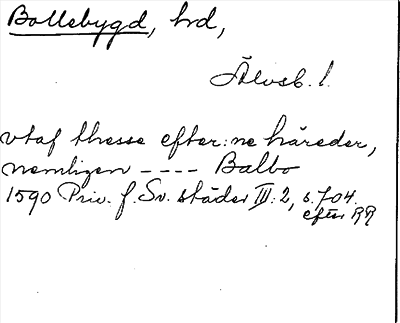 Bollebygd, hrd,
Älvsb. l.
vtaf thesse efter:ne häreder,
nemligen ---- Balbo
1590 Priv. f. Sv. städer III: 2, s. 704.
efter RR